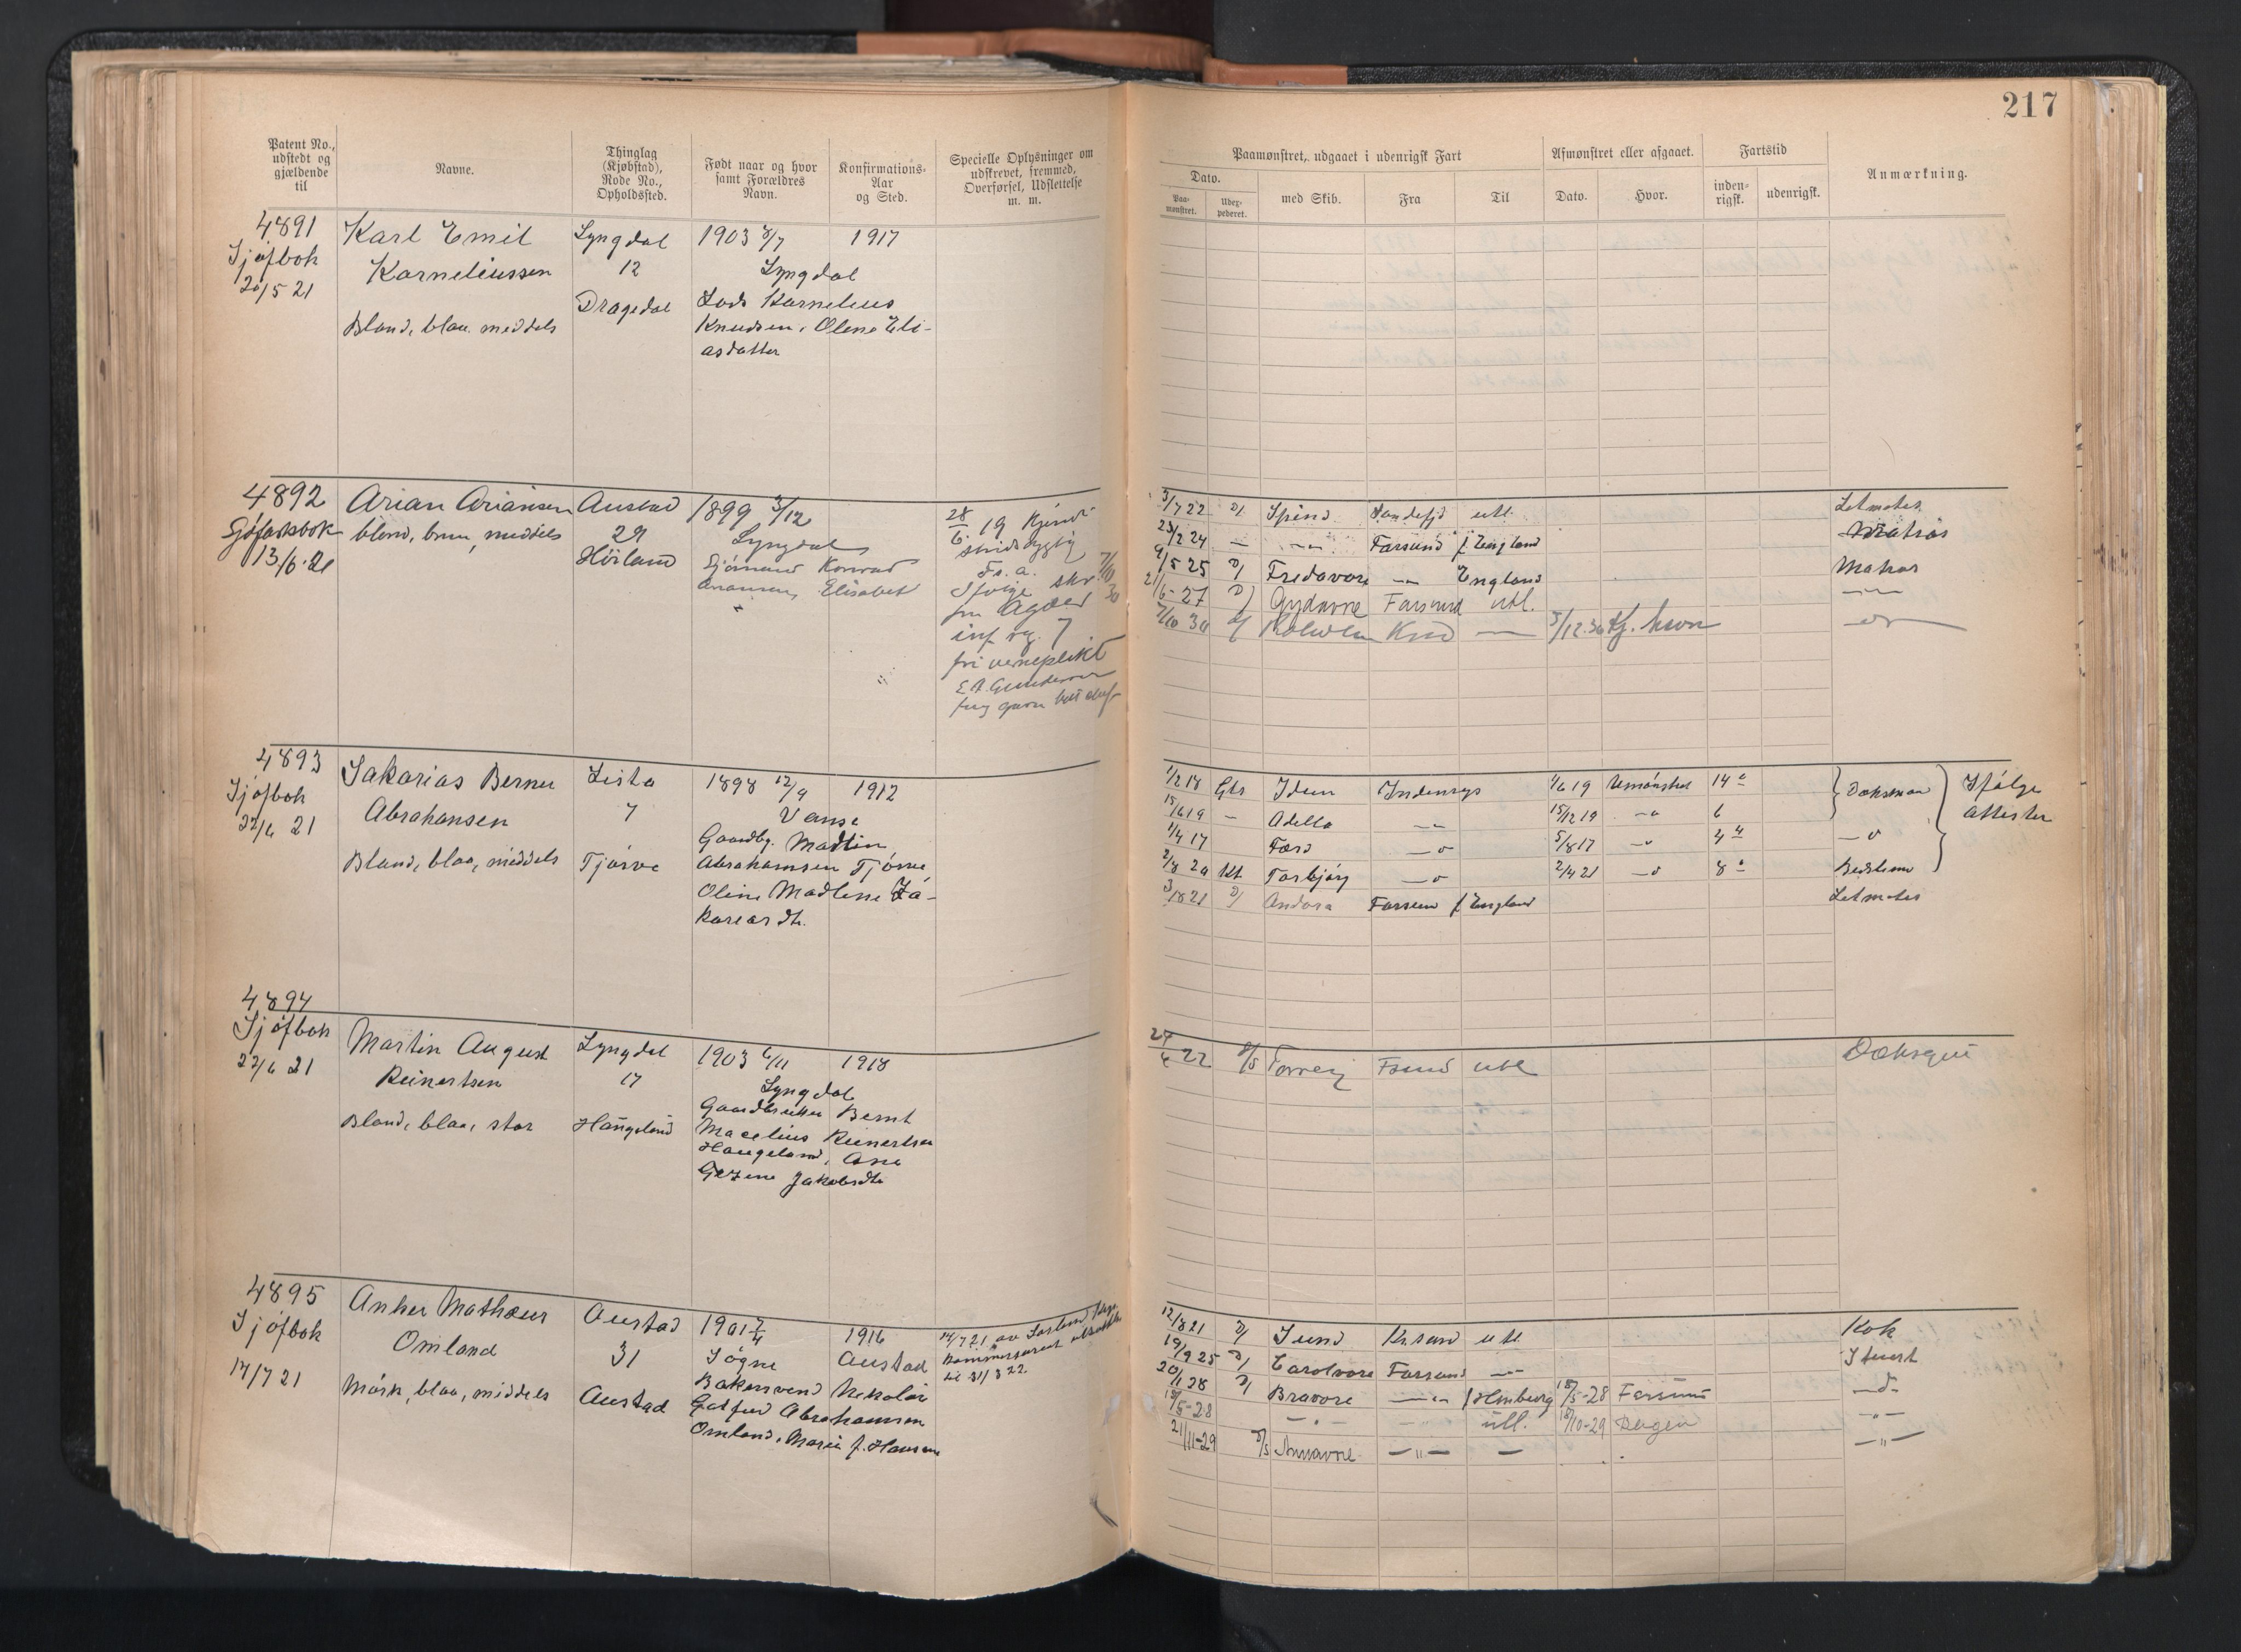 217
Patent No., udstedt og gjældende til
Navne.
Thinglag (Kjøbstad), Rode No., Opholdssted.
Født naar og hvor samt Forældres Navn.
Konfirmations-Aar og Sted.
Specielle Oplysninger om udskrevet, fremmed, Overførsel, Udslettelse m. m.
Paamønstret, udgaaet i udenrigsk Fart
Dato.
Paa-mønstret.
Udex-pederet.
med Skib.
Fra
Til
Afmønstret eller afgaaet.
Dato.
Hvor.
Fartstid
inden-rigsk.
udenrigsk.
Anmærkning.
4891
Sjøfbok
20/5 21
Karl Emil
Karneliussen
Blond, blaa. middels
Lyngdal
12
Dragedal
1903 8/7
1917
Lyngdal
Lods Karnelius
Knudsen, Olene Eli-
asdatter
4892
Sjøfartsbok
13/6 21
Arian Ariansen
blond, brun, middels
Austad
29
Hörland
1899 3/12
Lyngdal
Sjömand Konrad
Ariansen, Elisabet
28/6 19 Kjendt
stridsdygtig
Fs. a.
Ifølge skr 7/10 30
fra Agder
inf rg. 7
fri verneplikt
3/7 22 Spind Sandefjd utl. Letmatros
23/2 24 — — Farsund f England Matros
9/5 25 Fredavore — England Makos
21/6-27 Gydavore Farsund utl. —
7/10 30 — 5/12.30 Kj. havn —
4893
Sjøfbok
22/6 21
Sakarias Berner
Abrahamsen
Blond, blaa, middels
Lista
7
Tjørve
1898 12/9
1912
Vanse
Gaardbr. Madtin
Abrahamsen Tjörve,
Oline Madlene Za-
kariasdtr.
1/2 18 Gls Idun Indenrigs 1/6 19 Uemönstret 14 Dæksman
15/6 19 — Adella — 15/12 19 — 6
1/4 17 Færd — 5/8 17 — 4 —
2/8 20 Kt. Torbjörg — 2/4 21 — 8 Bedstemd
3/8 21 Andora Farsund f England Letmatros
Ifölge
attester
4894
Sjøfbok
22/6 21
Martin August
Reinertsen
Blond, blaa, stor
Lyngdal
17
Haugeland
1903 6/11
1918
Lyngdal
Gaardbruker Bernt
Macelius Reinertsen
Haugeland, Ane
Gezine Jakobsdtr
24/4 22 D/S Fsund utl Dæksgut
4895
Sjøfbok
14/7 21
Anker Mathæus
Omland
Mörk, blaa, middels
Austad
31
Austad
1901 7/4
1916
Søgne
Austad
Bakersvend Nikolai
Gotfred Abrahamsen
Omland, Marie f. Hansen
14/7 21 av
Kommissariat utsatt
til 31/3 22
12/8 21 Sund Kr.sand utl Kok
19/9 25 Carolvore Farsund — Stuert
20/1 28 Bravore — f Hmburg 18/5-28 Farsund —
18/5-28 — — utl. 18/10-29 Bergen —
21/11-29 D/S Annavore — — —